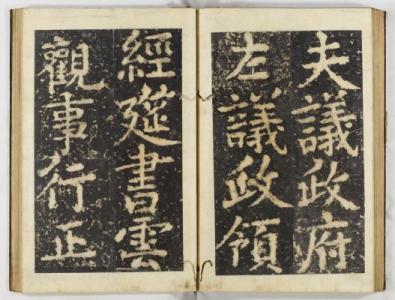 夫議政府
左議政領
經筵書雲
觀事行正